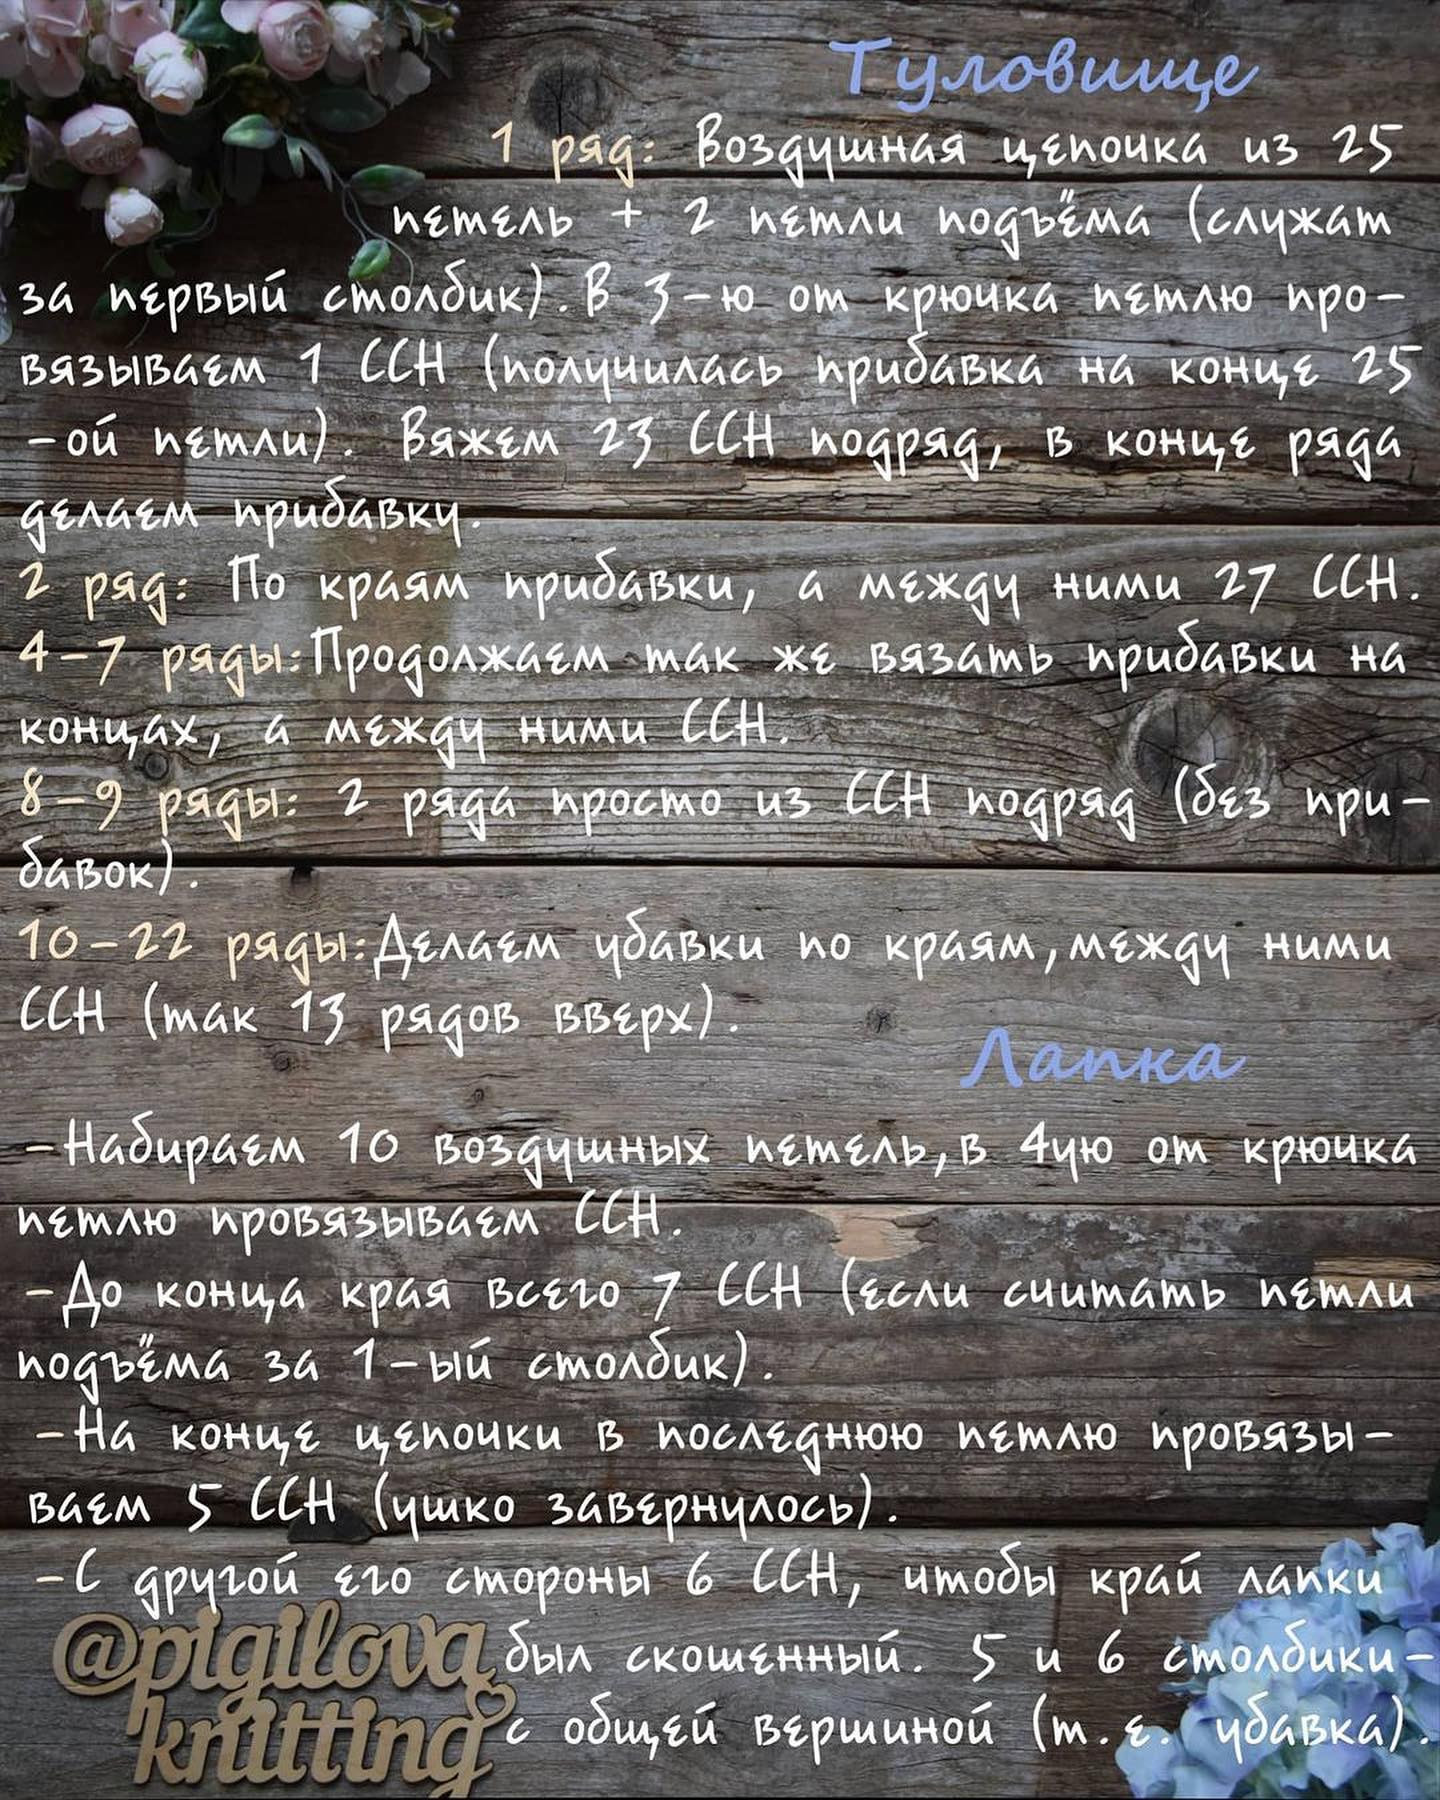 Туловище
1 ряд: Воздушная цепочка из 25
петель + 2 петли подъёма (служат
за первый столбик). В 3-ю от крючка петлю про-
вязываем 1 ССН (получилась прибавка на конце 25
-ой петли). Вяжем 23 ССН подряд, в конце ряда
делаем прибавку.
2 ряд: По краям прибавки, а между ними 27 ССН.
4-7 ряды: Продолжаем так же вязать прибавки на
концах, а между ними ССН.
8-9 ряды: 2 ряда просто из ССН подряд (без при-
бавок).
10-22 ряды: Делаем убавки по краям, между ними
ССН (так 13 рядов вверх).
Лапка
-Набираем 10 воздушных петель, в 4ую от крючка
петлю провязываем ССН.
-До конца края всего 7 ССН (если считать петли
подъёма за 1-ый столбик).
-На конце цепочки в последнюю петлю провязы-
ваем 5 ССН (ушко завернулось).
-С другой его стороны 6 ССН, чтобы край лапки
был скошенный. 5 и 6 столбики-
с общей вершиной (т.е. убавка).
@pigilova
knitting